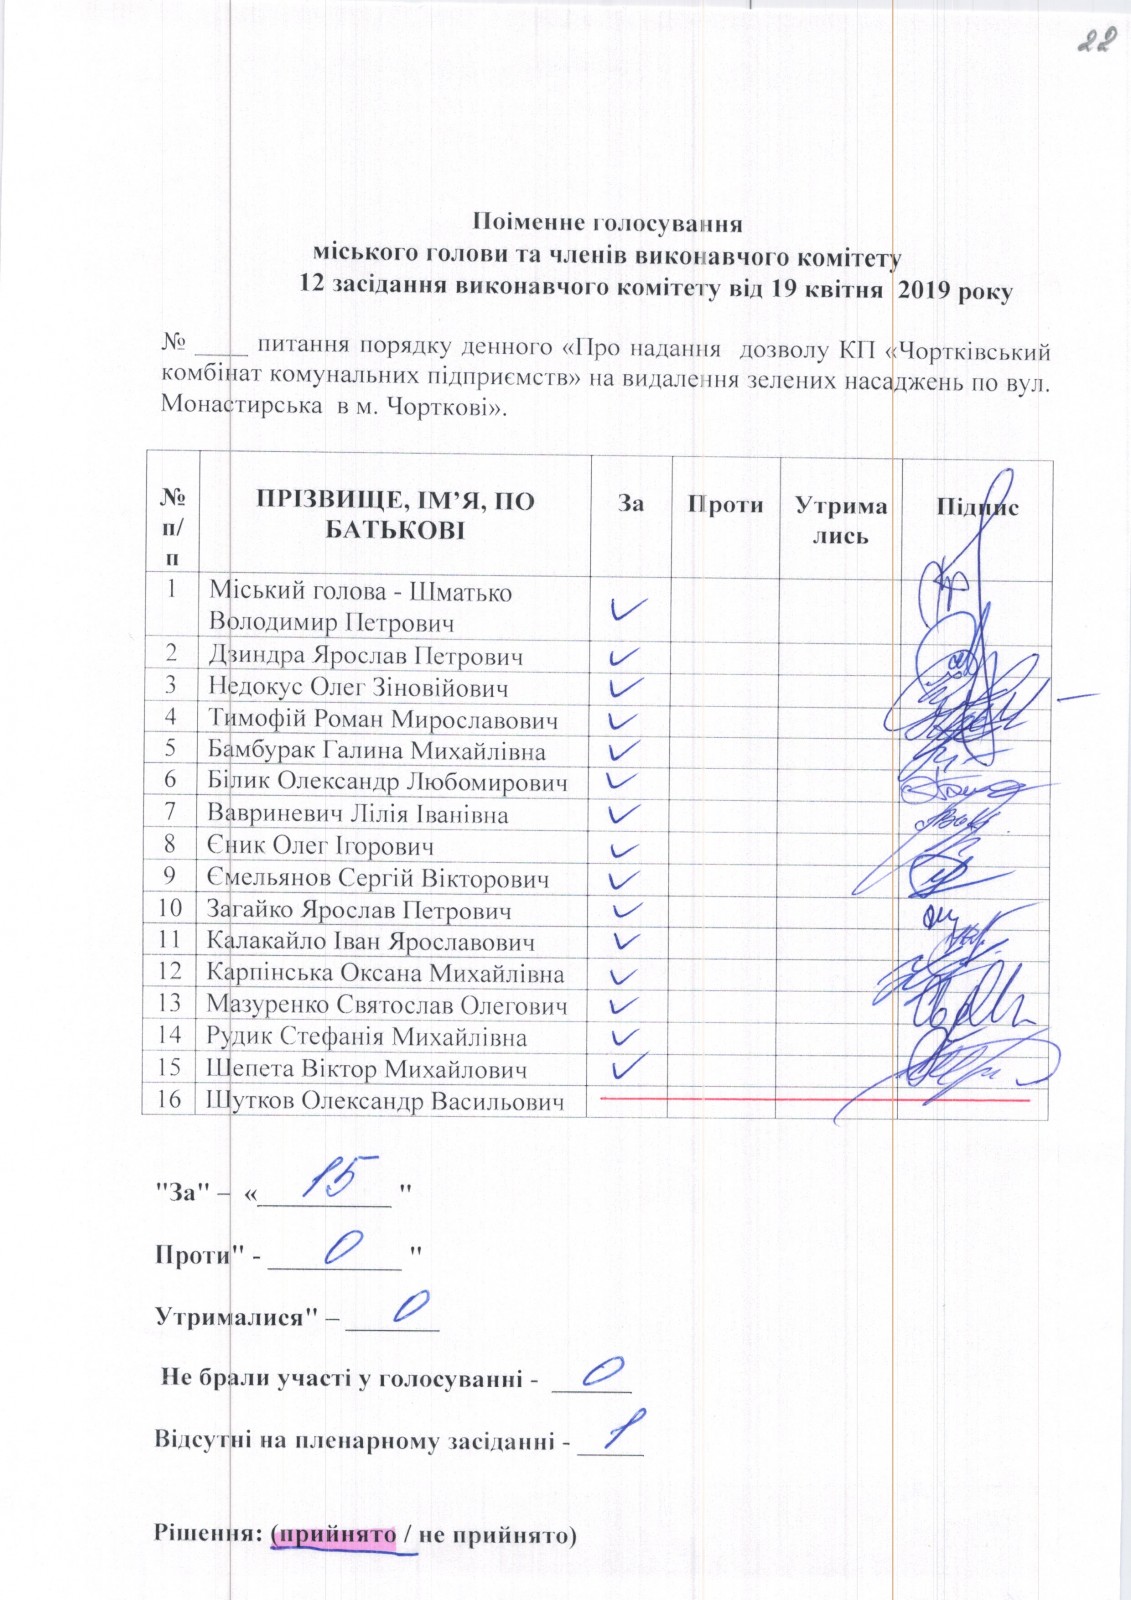 22
Поіменне голосування
міського голови та членів виконавчого комітету
12 засідання виконавчого комітету від 19 квітня 2019 року
№ ____ питання порядку денного «Про надання дозволу КП «Чортківський
комбінат комунальних підприємств» на видалення зелених насаджень по вул.
Монастирська в м. Чорткові».
№ п/п ПРІЗВИЩЕ, ІМ’Я, ПО БАТЬКОВІ За Проти Утрима лись Підпис
1 Міський голова - Шматько
Володимир Петрович ✓
2 Дзиндра Ярослав Петрович ✓
3 Недокус Олег Зіновійович ✓
4 Тимофій Роман Мирославович ✓
5 Бамбурак Галина Михайлівна ✓
6 Білик Олександр Любомирович ✓
7 Вавриневич Лілія Іванівна ✓
8 Єник Олег Ігорович ✓
9 Ємельянов Сергій Вікторович ✓
10 Загайко Ярослав Петрович ✓
11 Калакайло Іван Ярославович ✓
12 Карпінська Оксана Михайлівна ✓
13 Мазуренко Святослав Олегович ✓
14 Рудик Стефанія Михайлівна ✓
15 Шепета Віктор Михайлович ✓
16 Шутков Олександр Васильович
"За" – « 15 "
Проти" - 0 "
Утрималися" – 0
Не брали участі у голосуванні - 0
Відсутні на пленарному засіданні - 1
Рішення: (прийнято / не прийнято)